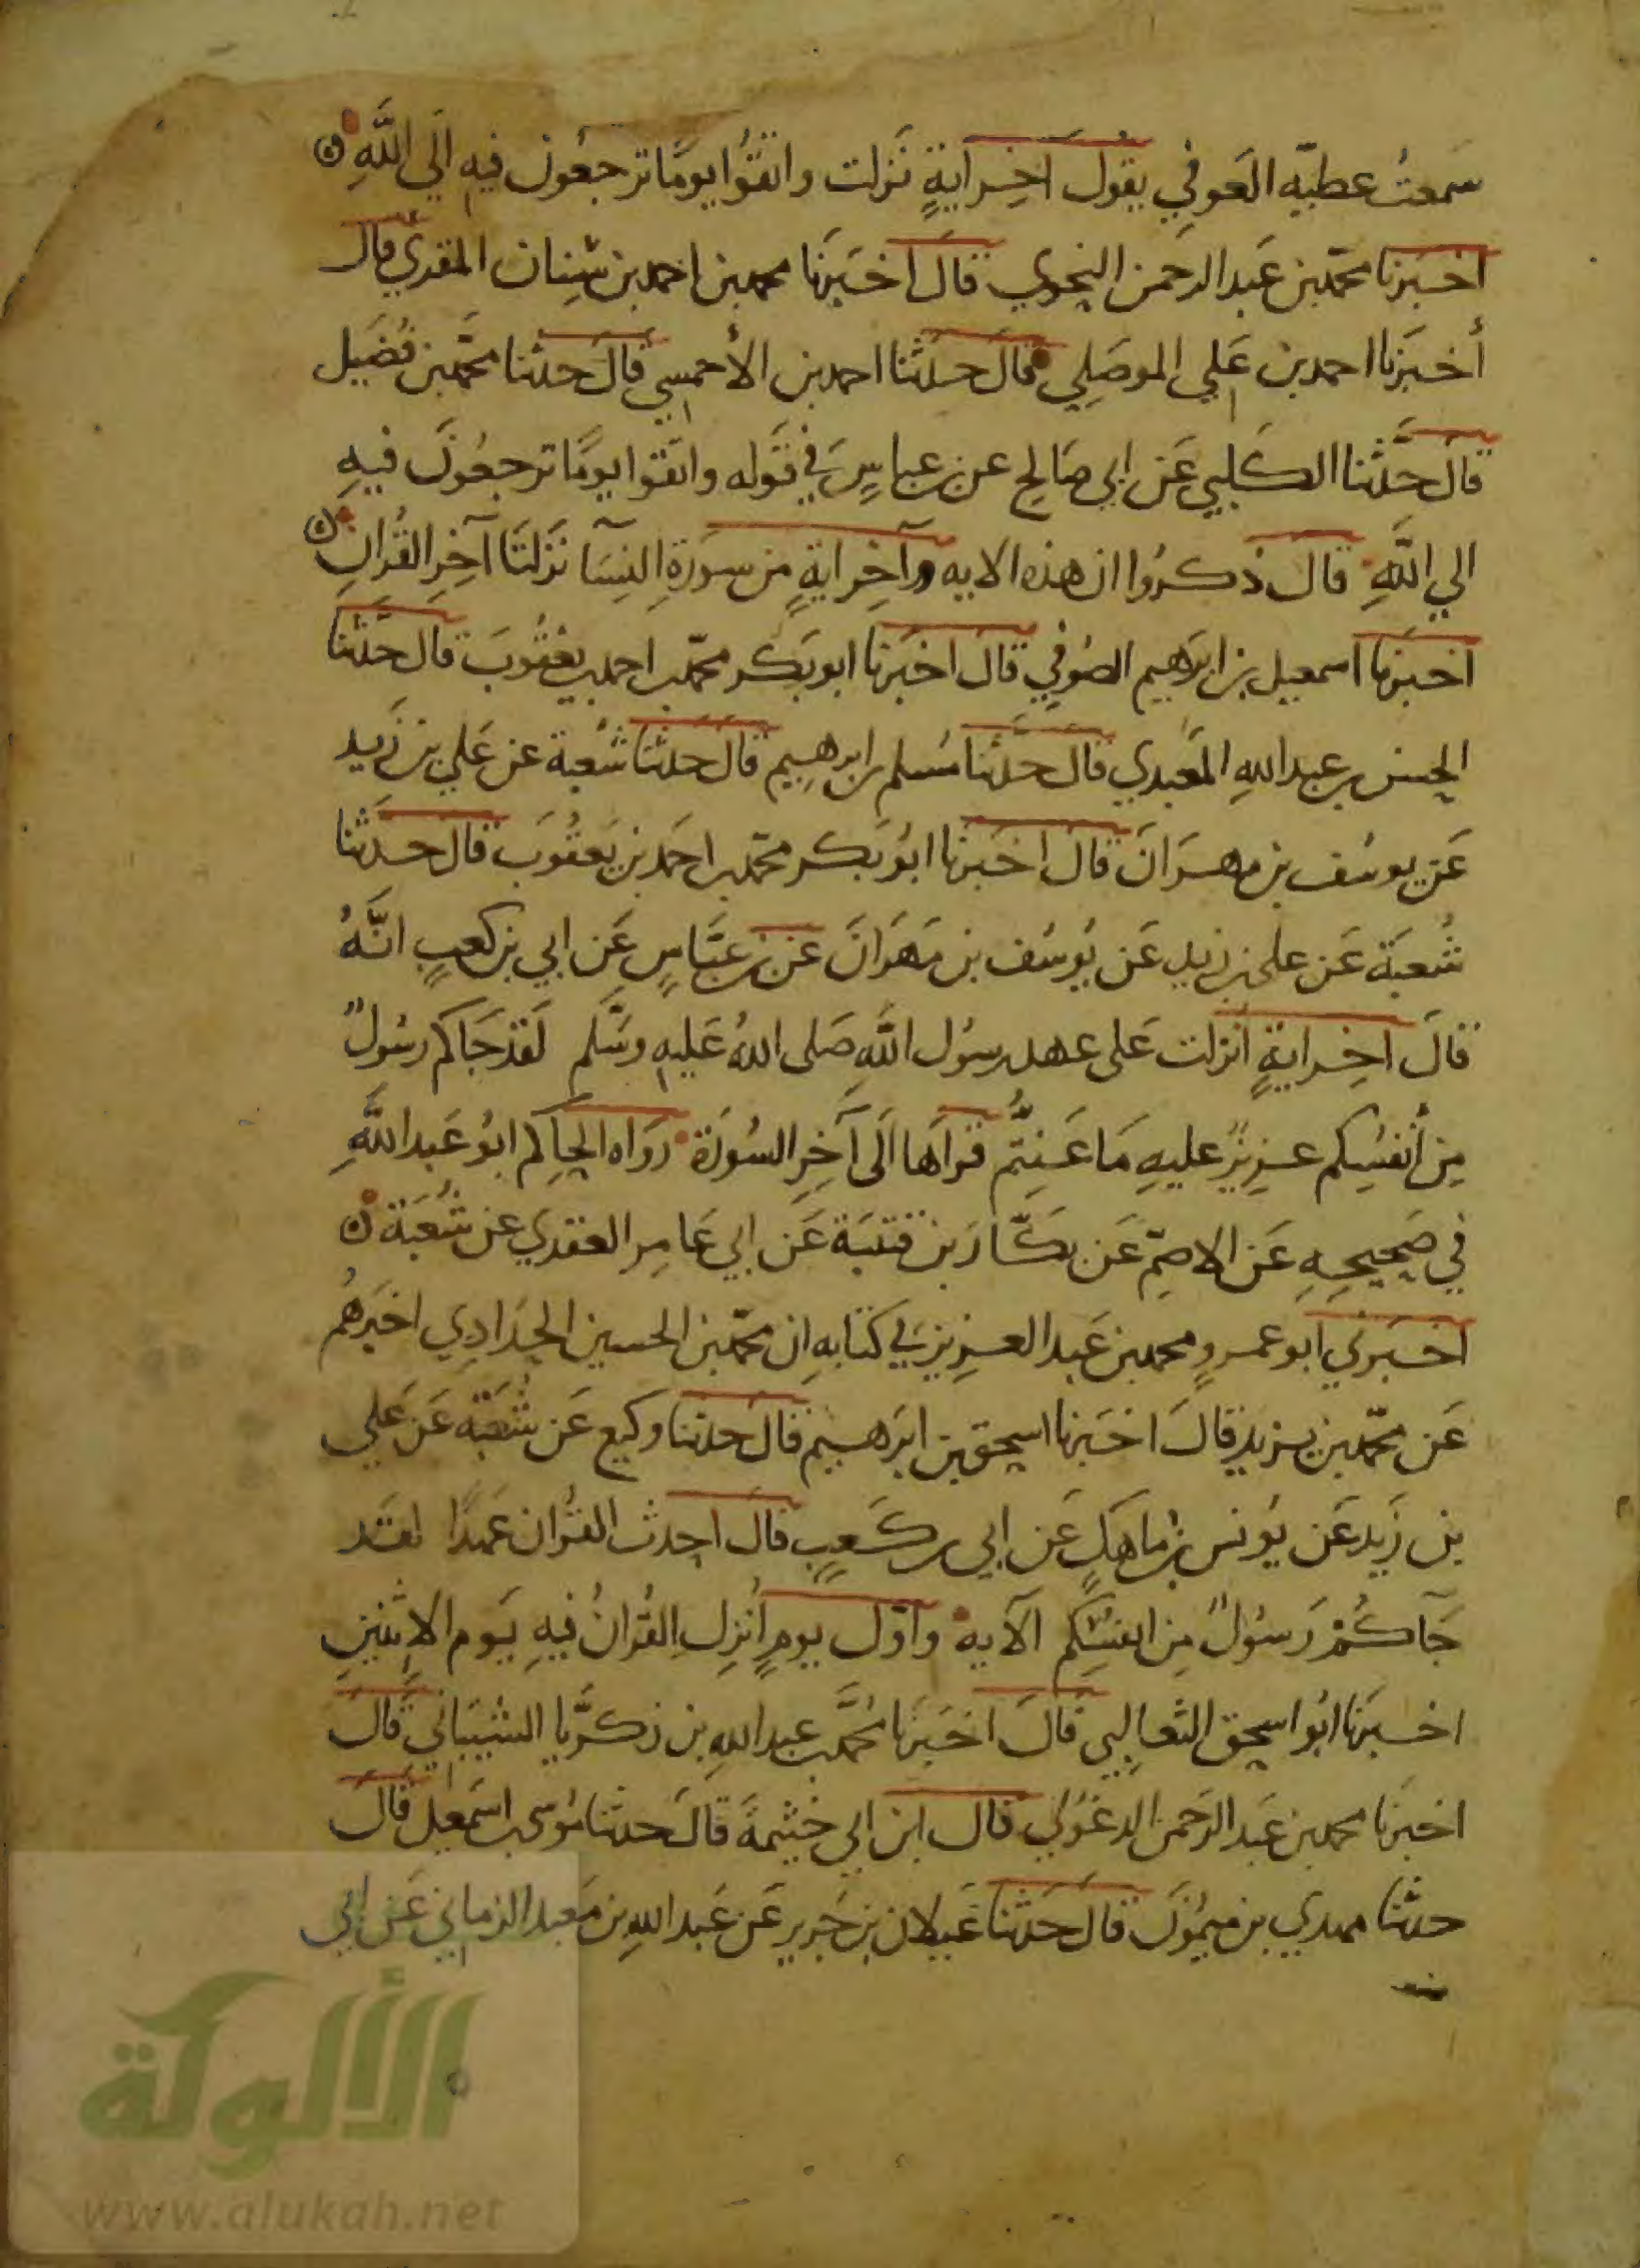 سَمعتُ عطيّه العَوفي يقُول اخِر ايةٍ نَزلت واتقوُا يومًا ترجعُون فيه الَي اللَّهِ ه
اخبَرنا محمّد بن عَبد الرحمن النحوي قالَ اخبَرنا محمد بن احمد بن سِنان المقري قال
أخبَرنا احمد بن عَلي الموصَلِي فقال حدثنا احمد بن الأحمسي قالَ حدثنا محمّد بن فضَيل
قالَ حدَّثنا الكلبي عَن ابي صَالح عن بن عباسٍ في قَوله واتقوا يومًا ترجعُونَ فيهِ
الي اللَّهِ قالَ ذكرُوا ان هذه الايه وآخِر ايةٍ من سورَةِ النِسَآ نَزلتَا آخِر القُرانِ ه
اخبَرنا اسمعيل بن ابرَهيم الصُوفي قالَ اخبَرنا ابو بَكر محمّد بن احمد بن يعقُوبَ قال حدَّثنا
الحسن بن عبد اللهِ المعَبدي قالَ حدَّثنا مُسلم بن ابرهيم قالَ حدثنا شُعبة عن عَلي بن زَيد
عَن يوسُف بن مهرَانَ قالَ اخبَرنا ابُو بَكر محمّد بن احمَد بن يَعقُوبَ قال حدثنا
شُعبَة عَن علي بن زيد عَن يُوسُف بن مَهرَانَ عَن بن عبَّاسٍ عَن ابي بن كعبٍ انَّهُ
قالَ اخِر ايةٍ اُنزلت عَلى عهد رسوُل اللَّهِ صَلى اللهُ عَليهِ وسَّلم لَقد جَاكم رسُولٌ
مِن أنفسُِكم عزِيزٌ عليهِ مَا عَنِتُّم قَرأهَا الَى آخِرِ السُورَة رَوَاه الحَاكِم ابُو عَبد اللَّهِ
في صَحِيحِهِ عَن الاصَمّ عَن بكَّار بن قتيبَة عَن ابي عَامِر العقدي عن شُعبَة ه
اخبَرني ابو عمرٍو محمد بن عَبد العزيز في كتابهِ ان محمّد بن الحسين الحدَادِي اخبَرهُم
عَن محمّد بن يزيد قالَ اخبَرنا اسحق بن ابرَهيم قال حدثنا وكيع عَن شُعبَة عَن عَلي
بن زَيد عَن يُونس بن ماهَكٍ عَن ابي بن كعبٍ قالَ احدث القُران عَهدًا لقَد
جَآكُمْ رَسُولٌ مِن انفسُِكم الآيه وَاوّل يومٍ اُنزِل القُرانُ فيهِ يَوم الاِثنَينِ
اخبَرنا ابُو اسحق الثعالبي قالَ اخبَرنا مُحمَّد بن عبد اللهِ بن زكرَّيا الشيبَاني قالَ
اخبَرنا محمد بن عَبد الرَحمن الدغَولي قال ابن ابي خَيثمةَ قالَ حدثنا مُوسى بن اسَمعِيل قالَ
حدثنا مهدي بن ميمُونَ قالَ حدَثنا غَيلان بن جَرير عَن عَبد اللهِ بن مَعبد الزماني عَن ابي
الألوكة
www.alukah.net